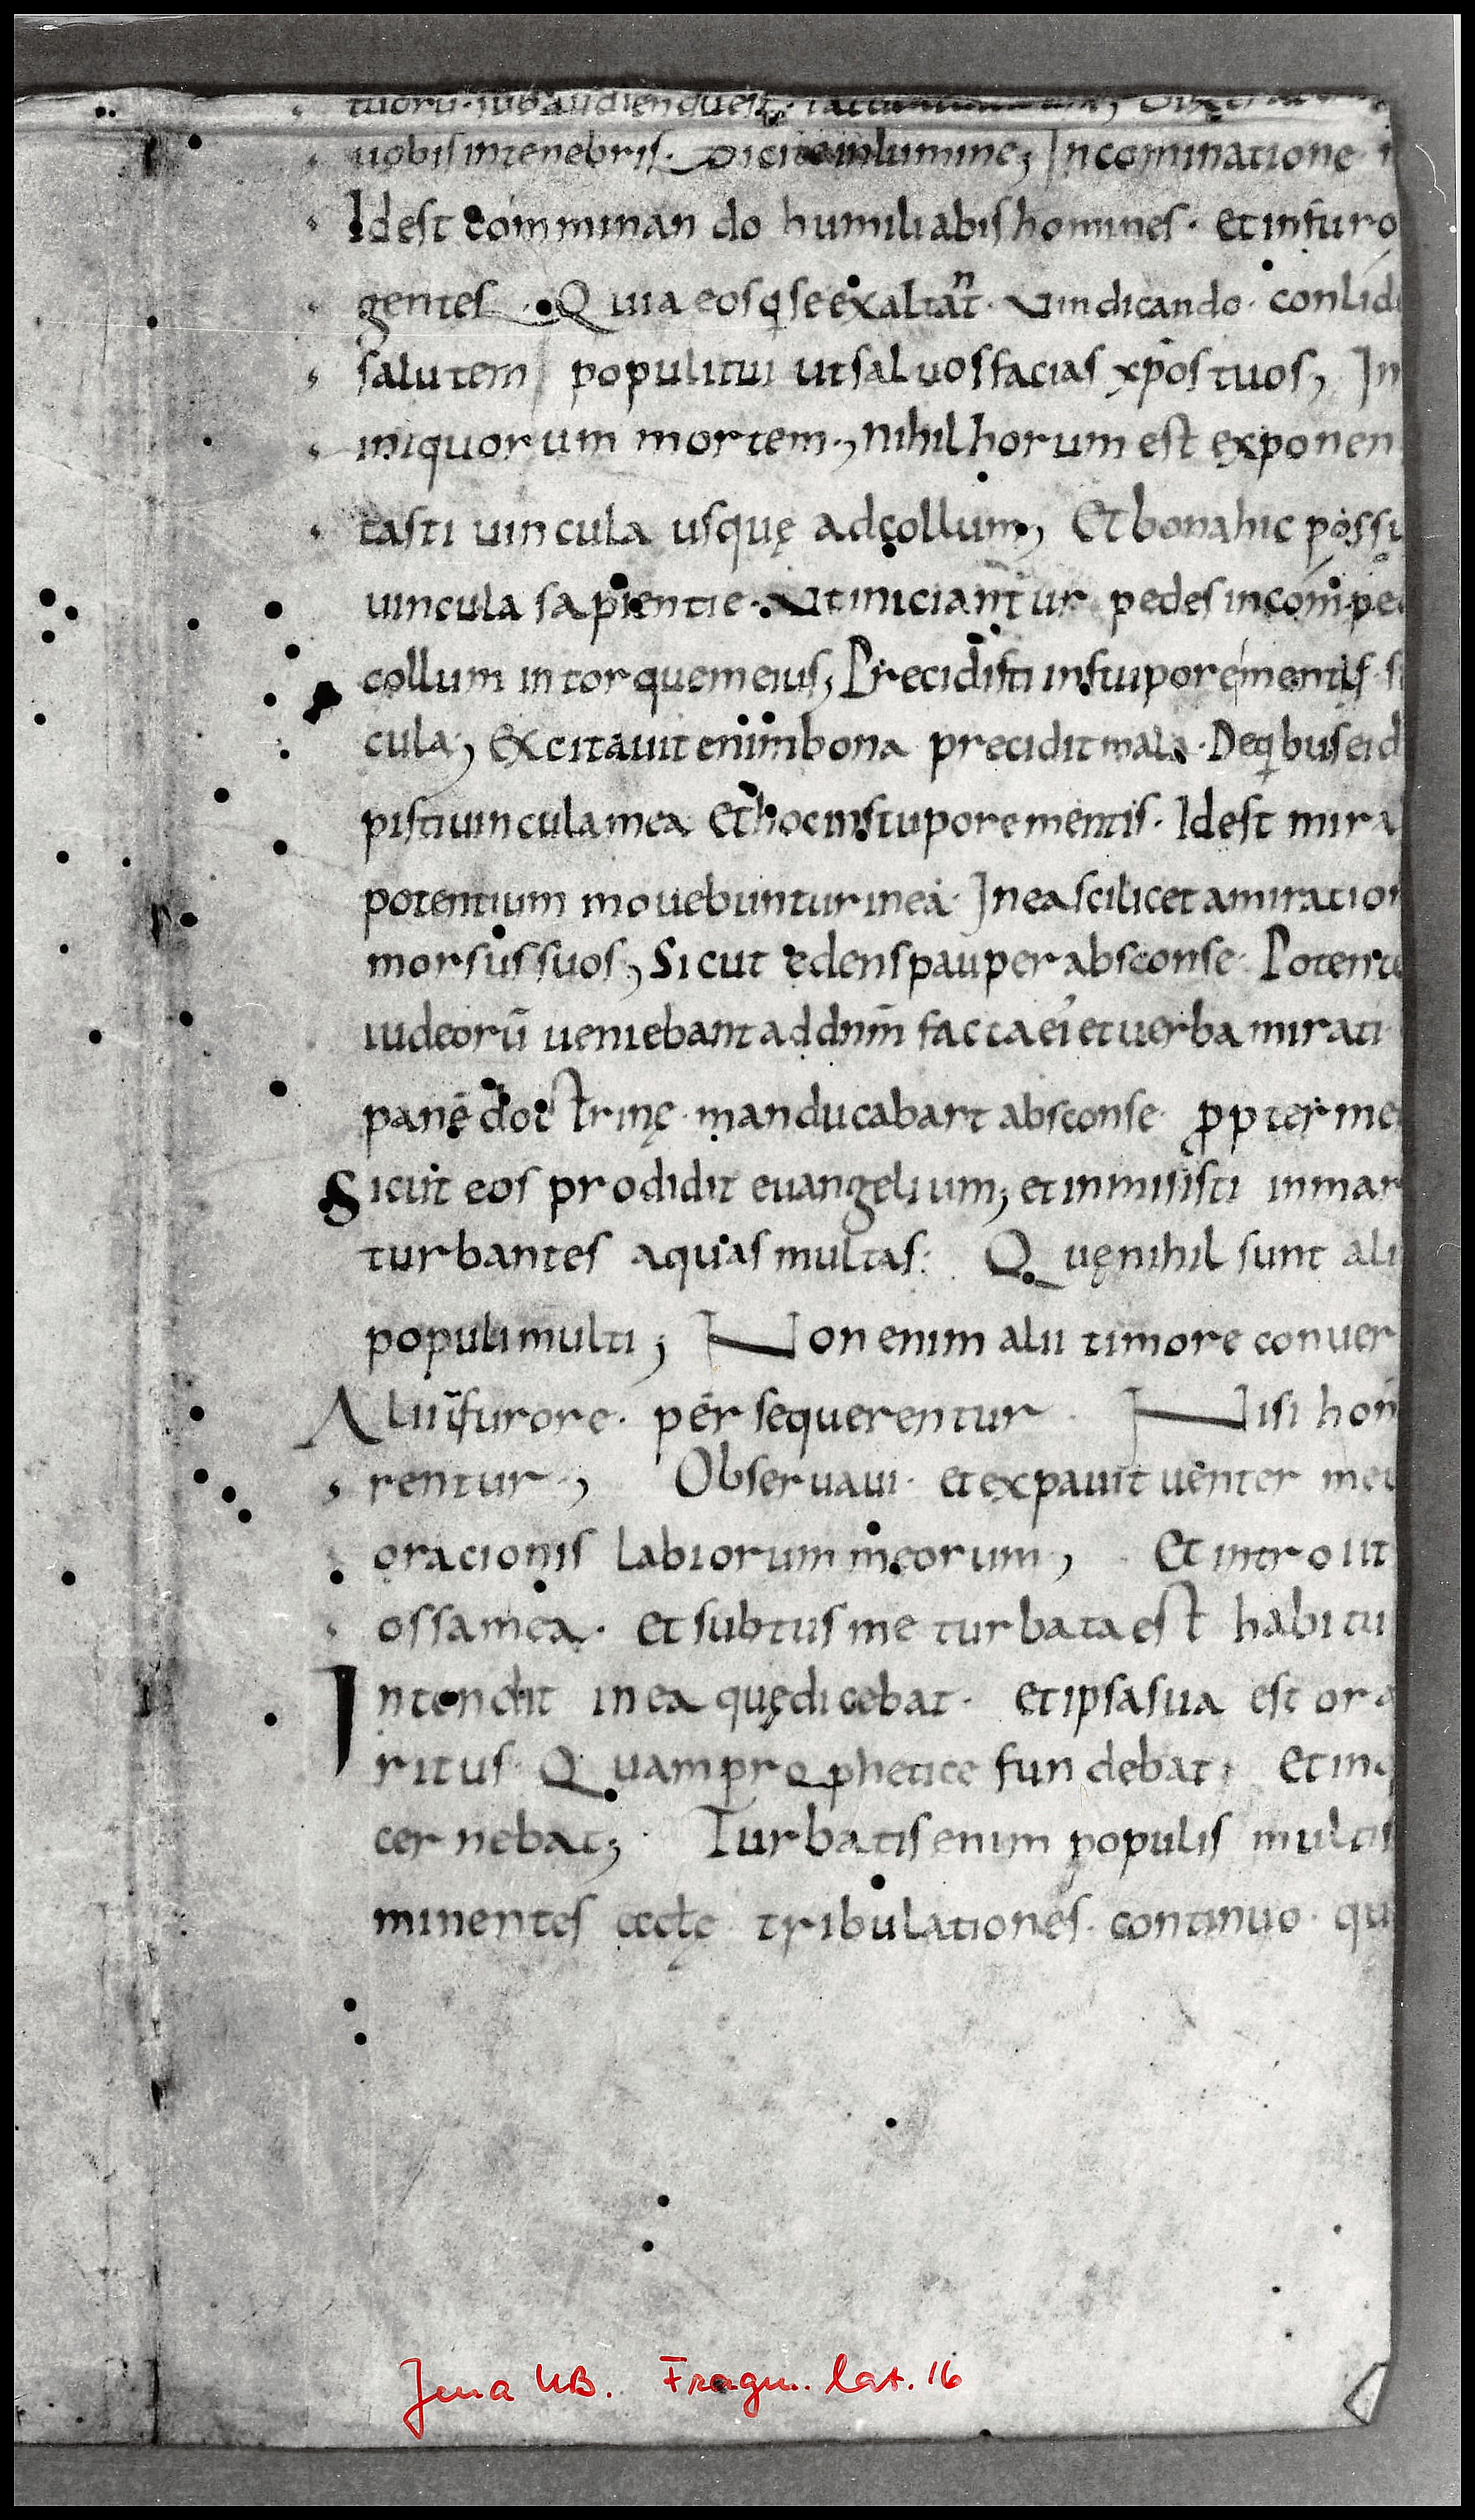 tuorū. subaudiendū est.
uobis in tenebris. Dicite in lumine; In cominatione
Id est comminando humiliabis homines. et in furo
gentes. Quia eos qͥ se exaltaⁿt. Vindicando. conlid
salutem populi tui ut saluos facias xp̄os tuos, In
iniquorum mortem., nihil horum est exponen
tasti uincula usquę ad collum, Et bona hic possu
uincula sapientie. Ut iniciantur pedes in compe
collum in torquem eius, Precidisti in stupore mentis
cula, Excitauit enim bona precidit mala. De qͥbus eid
pisti uincula mea Et hoc in stupore mentis. Id est mira
potentium mouebuntur in ea. In ea scilicet amiration
morsus suos, Sicut edens pauper absconse. Potente
iudeorū ueniebant ad dnm̄ facta ei et uerba mirati
panē doctrinę. manducabant absconse. ꝓpter me
Sicut eos prodidit euangelium; et inmisisti in mar
turbantes aquas multas. Quę nihil sunt ali
populi multi; Non enim alii timore conuer
Alii īfurore. persequerentur. Nisi hoR
rentur., Obseruaui. et expauit uenter meu
oracionis labiorum meorum, Et introiit
ossa mea. et subtus me turbata est habitu
Intendit in ea quę dicebat. et ipsa sua est ora
ritus. Quam prophetice fundebat; Et in q
cernebat; Turbatis enim populis multis
minentes eccłę tribulationes. continuo. qu
Jena UB. Fragm. lat. 16